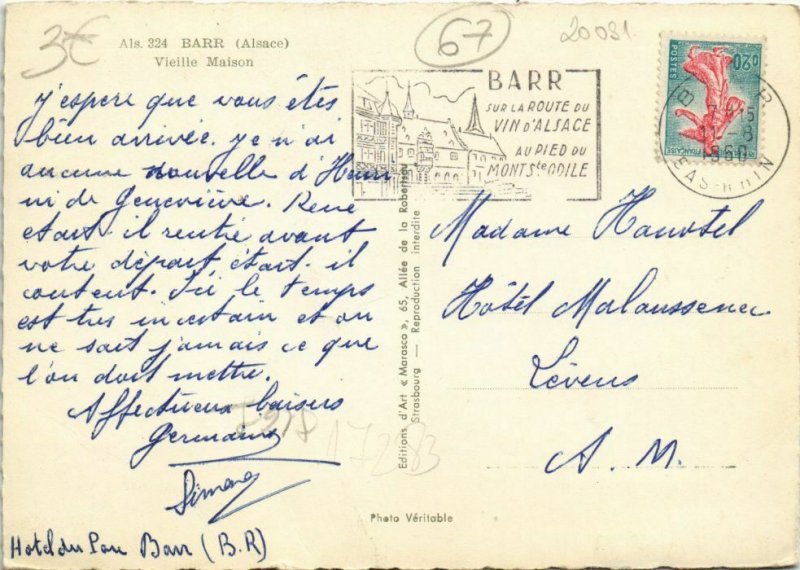 3€
Als. 324 BARR (Alsace)
Vieille Maison
67
20081
j'espere que vous êtes
bien arrivée. je n'ai
aucune nouvelle d'Henri
ni de Geneviève. René
etait il rentré avant
votre départ était il
content. Ici le temps
est tres incertain et on
ne sait jamais ce que
l'on doit mettre.
Affectueux baisers
Germaine
Simone
Hotel du Barr (B.R)
BARR
SUR LA ROUTE DU
VIN D'ALSACE
AU PIED DU
MONT Ste ODILE
POSTES
0,20
1960
BAS-RHIN
Editions d'Art « Marasco », 65, Allée de la Robertsau
Strasbourg — Reproduction interdite
Madame Hanotel
Hôtel Malaussena
Lévens
A. M.
17283
Photo Véritable